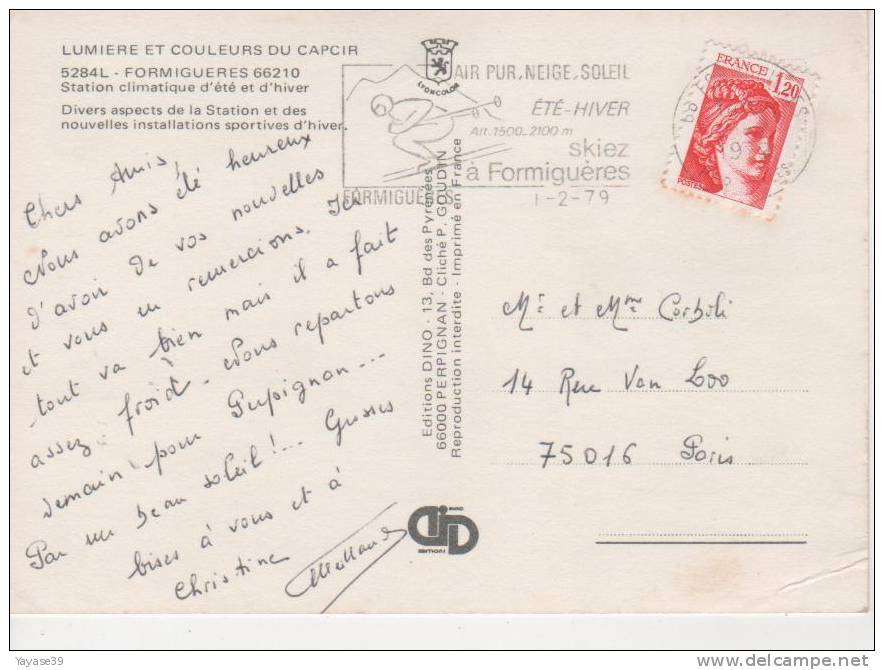 LUMIERE ET COULEURS DU CAPCIR
5284L - FORMIGUERES 66210
Station climatique d'été et d'hiver
Divers aspects de la Station et des
nouvelles installations sportives d'hiver.
LYONCOLOR
AIR PUR, NEIGE, SOLEIL
ÉTÉ-HIVER
Alt. 1500_2100 m
skiez
à Formiguères
FORMIGUÈRES
1-2-79
FRANCE 1,20
POSTES
Chers Amis,
Nous avons été heureux
d'avoir de vos nouvelles
et vous en remercions. Ici
tout va bien mais il a fait
assez froid. Nous repartons
demain pour Perpignan...
Par un beau soleil!... Grosses
bises à vous et à
Christine
Editions DINO - 13, Bd des Pyrénées
66000 PERPIGNAN - Cliché P. GOUDIN
Reproduction interdite - Imprimé en France
DINO
EDITIONS
Mr et Mme Corboli
14 Rue Van Loo
75016 Paris
Yayase39
www.delcampe.net